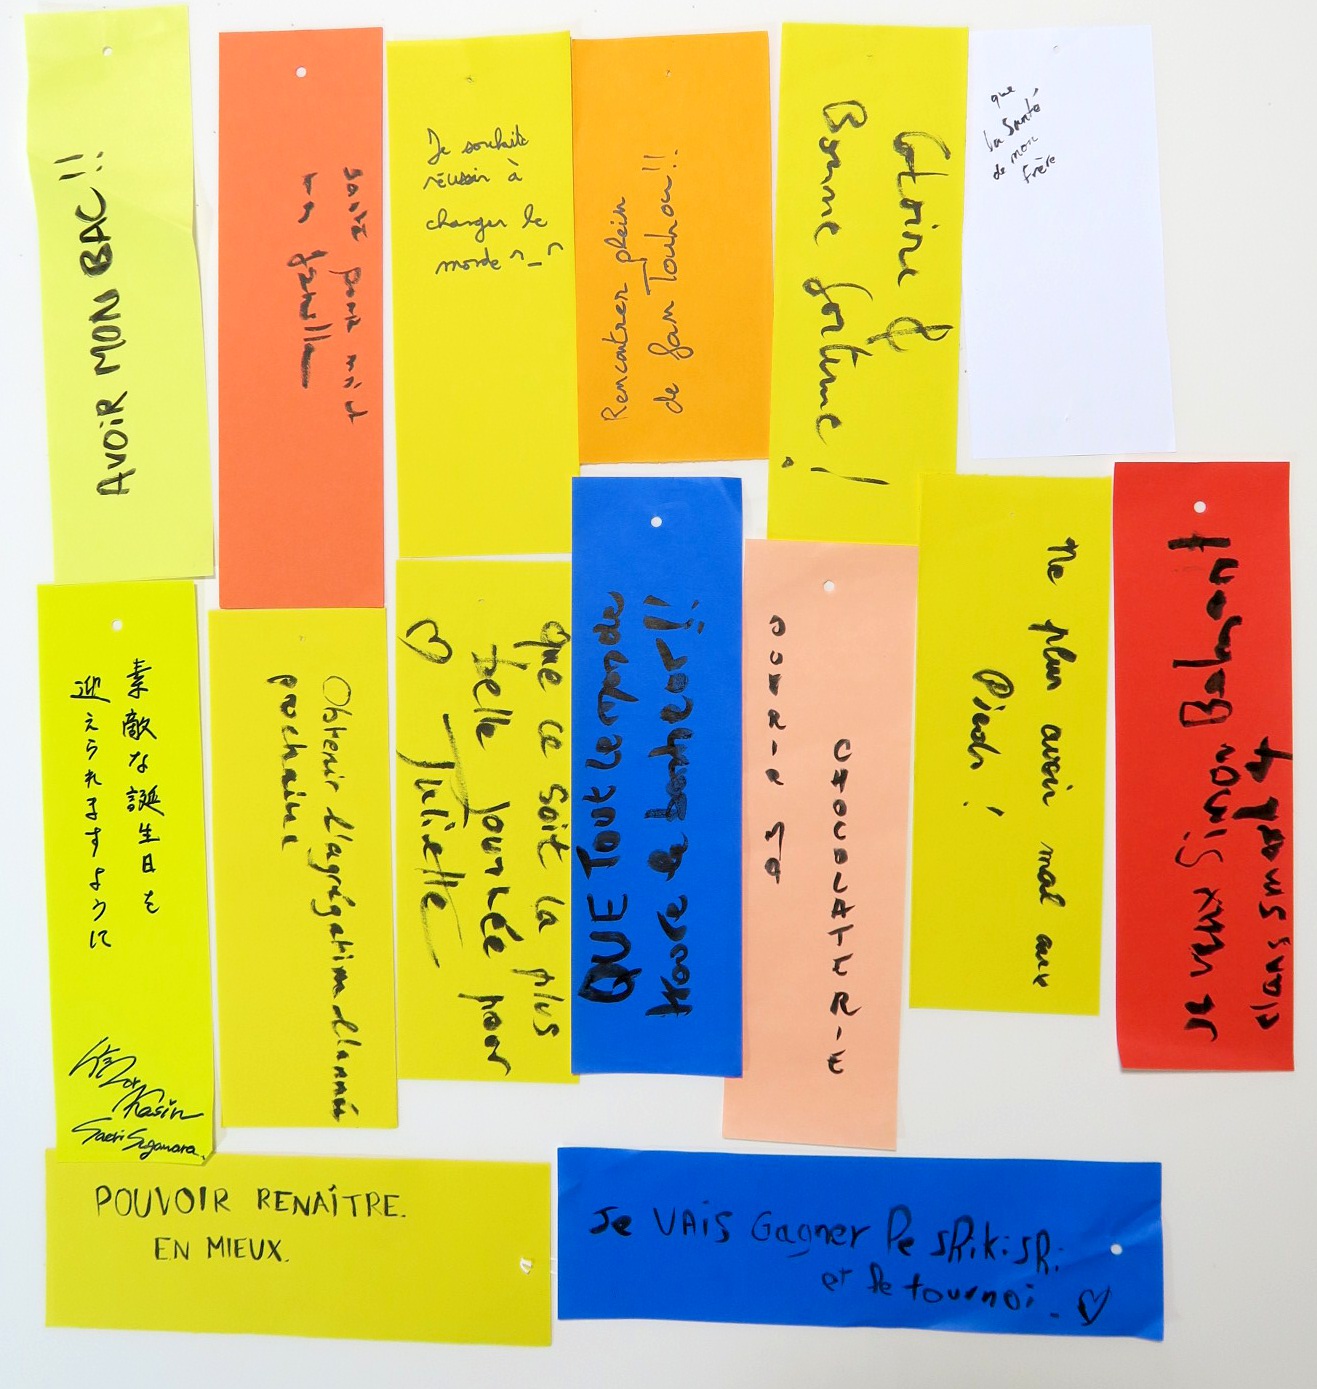 AVOIR MON BAC !!
santé pour moi et
ma famille
Je souhaite
réussir à
changer le
monde ^_^
Rencontrer plein
de fan Touhou!!
Gloire &
Bonne fortune !
que
la santé
de mon
frère
素敵な誕生日を
迎えられますように
Saeri Sugawara
Obtenir l'agrégation l'année
prochaine
Que ce soit la plus
belle journée pour
♡ Juliette
QUE Tout Le monde
trouve le bonheur!!
OUVRIR MA
CHOCOLATERIE
Ne plus avoir mal aux
Pieds !
Je veux Simon Belmont
dans smash 4
POUVOIR RENAÎTRE.
EN MIEUX.
Je VAIS Gagner le shikishi
et le tournoi. ♡